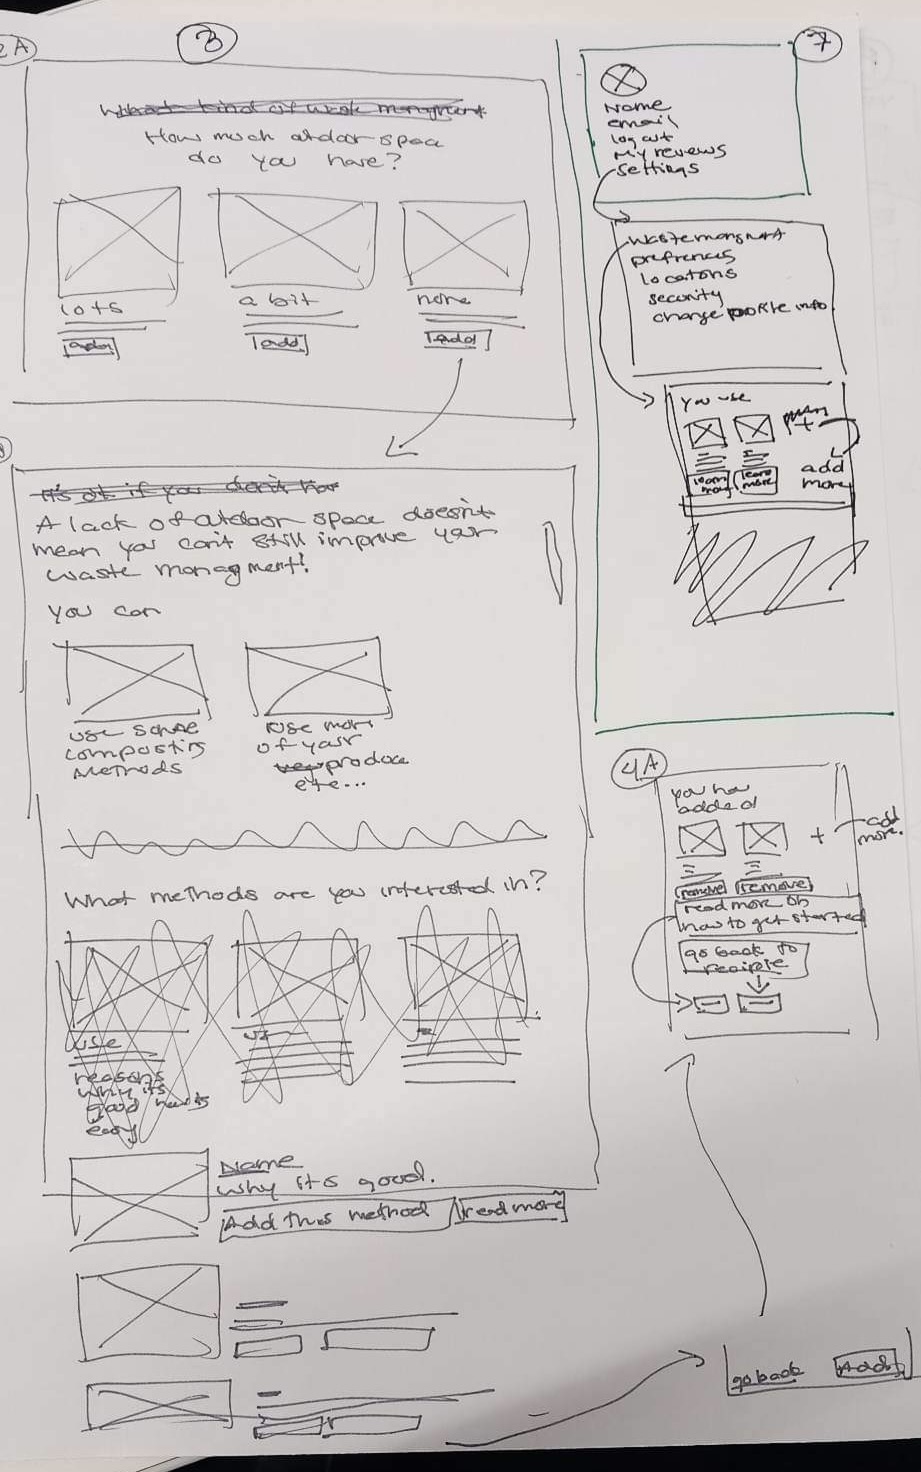 2A
3
How much outdoor space
do you have?
lots
a bit
none
add
add
add
A lack of outdoor space doesn't
mean you can't still improve your
waste managment!
you can
use some
composting
methods
use more
of your
produce
etc...
What methods are you interested in?
use
reasons
why it's
good
easy
Name
why it's good.
Add this method
read more
7
Name
email
log out
My reviews
settings
waste mangment
prefrences
locations
security
change profile info
you use
learn
more
learn
more
+
add
more
4A
you have
added
+
add
more.
remove
remove
read more on
how to get started
go back to
recipie
go back
Add